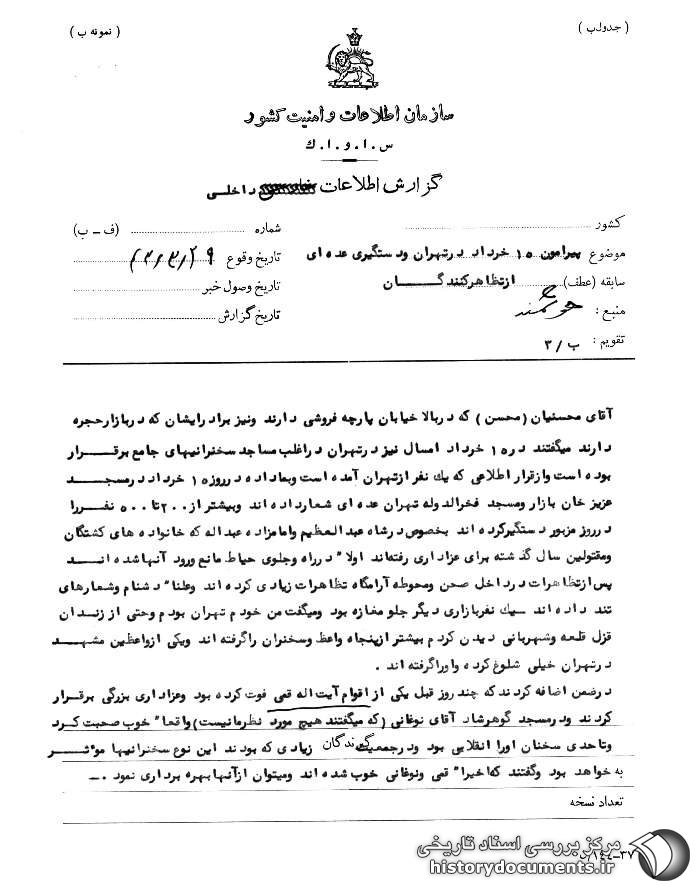 ( جدول ب )
( نمونه ب )
سازمان اطلاعات و امنیت کشور
س . ا . و . ا . ك
گزارش اطلاعات داخلی
کشور
شماره (ف – ب)
موضوع پیرامون ۱۵ خرداد درتهران ودستگیری عده ای
تاریخ وقوع
سابقه (عطف) ازتظاهرکنندگـــــان
تاریخ وصول خبر
منبع : هوشمند
تاریخ گزارش
تقویم : ب/ ۳
آقای محسنیان (محسن ) که دربالا خیابان پارچه فروشی دارند ونیز برادرایشان که دربازارحجره
دارند میگفتند در۱۵ خرداد امسال نیز درتهران دراغلب مساجد سخنرانیهای جامع برقـــرار
بوده است وازقرار اطلاعی که یك نفر ازتهران آمده است وبماداده درروز۱۵ خرداد درمسجـــد
عزیز خان بازار ومسجد فخرالدوله تهران عده ای شعارداده اند وبیشتر از۲۰۰تا ۵۰۰ نفـــررا
درروز مزبور دستگیرکرده اند بخصوص درشاه عبدالعظیم وامامزاده عبداله که خانواده های کشتگان
ومقتولین سال گذشته برای عزاداری رفته‌اند اولا" درراه وجلوی حیاط مانع ورود آنهاشده انـــد
پس ازتظاهرات درداخل صحن ومحوطه آرامگاه تظاهرات زیادی کرده اند وعلنا" دشنام وشعارهای
تند داده اند –یك نفربازاری دیگر جلو مغازه بود ومیگفت من خودم تهران بودم وحتی از زنـــدان
قزل قلعه وشهربانی دیدن کردم بیشتر ازپنجاه واعظ وسخنران راگرفته اند ویکی ازواعظین مشهـــد
درتهران خیلی شلوغ کرده واوراگرفته اند .
درضمن اضافه کردندکه چند روز قبل یکی از اقوام آیت اله قمی فوت کرده بود وعزاداری بزرگی برقـرار
کردند ودرمسجد گوهرشاد آقای نوغانی (که میگفتند هیچ مورد نظرمانیست) واقعا" خوب صحبت کرد
وتاحدی سخنان اورا انقلابی بود ودرجمعیت کنندگان زیادی که بودند این نوع سخنرانیها موثـــر
به خواهد بود وگفتند که‌اخیرا" قمی ونوغانی خوب شده اند ومیتوان ازآنهابهره برداری نمود .—
تعداد نسخه
۵/۱۴۴-۳۷
مرکز بررسی اسناد تاریخی
historydocuments.ir